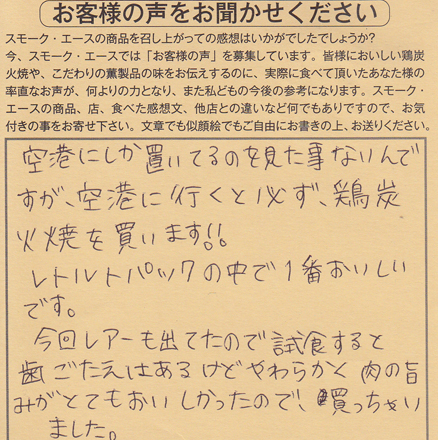 お客様の声をお聞かせください
スモーク・エースの商品を召し上がっての感想はいかがでしたでしょうか?
今、スモーク・エースでは「お客様の声」を募集しています。皆様においしい鶏炭
火焼や、こだわりの薫製品の味をお伝えするのに、実際に食べて頂いたあなた様の
率直なお声が、何よりの力となり、また私どもの今後の参考になります。スモーク・
エースの商品、店、食べた感想文、他店との違いなど何でもありですので、お気
付きの事をお寄せ下さい。文章でも似顔絵でもご自由にお書きの上、お送りください。
空港にしか置いてるのを見た事ないんで
すが、空港に行くと必ず、鶏炭
火焼を買います!!
レトルトパックの中で1番おいしい
です。
今回レアーも出てたので試食すると
歯ごたえはあるけどやわらかく肉の旨
みがとてもおいしかったので、買っちゃい
ました。